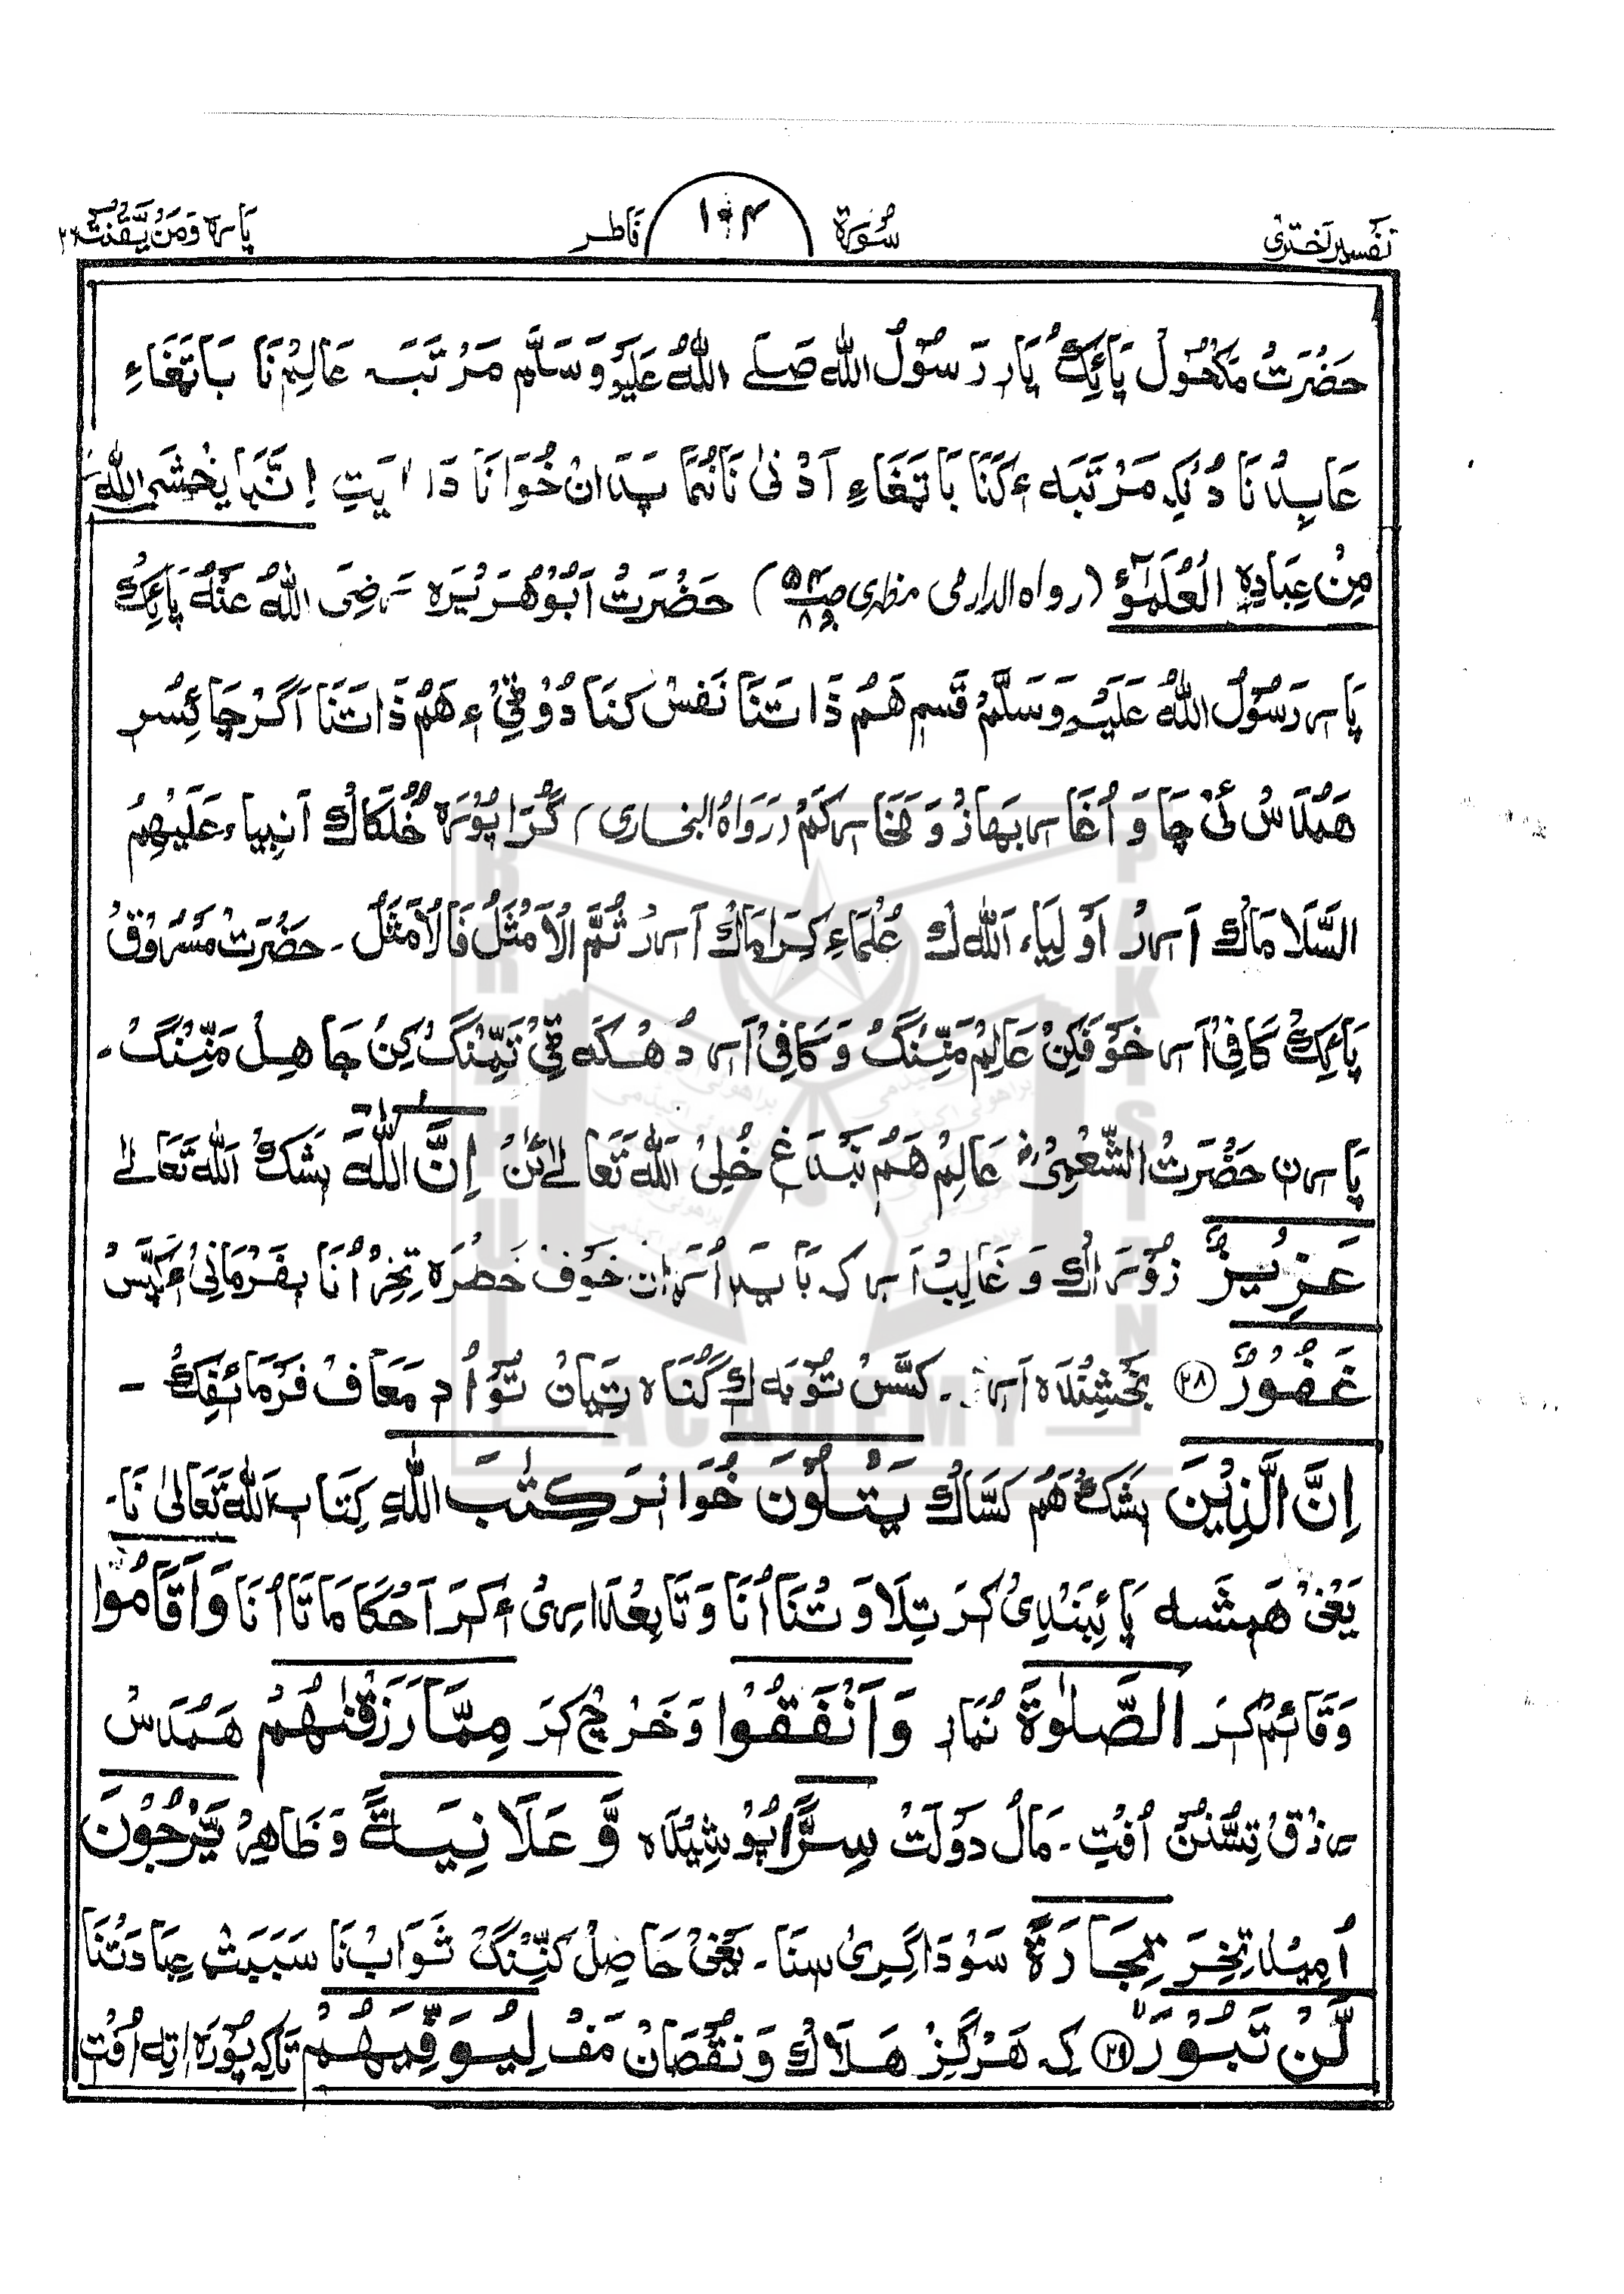 تفسیر اختری
سُورۃ
۱۹۴
فَاطر
پَارہ وَمَنْ یَّقْنُتْ ۲۲
حَضْرَتْ مَکْحُوْل پَائِکْ پَار رَسُوْلُ اللّٰہ صَلَے اللّٰہُ عَلَیْہِ وَسَلَّم مَرْتَبَہ عَالِمْ نَا بَاتَغَاءِ
عَابِدْ نَا دُنْکِہ مَرْتَبَہ ءِ کَنَا بَاتَغَاءِ اَدْنیٰ نَانُمَا پَدَانْ خُوَانَا دَا اٰیَتِ اِنَّمَا یَخْشَی اللّٰہَ
مِنْ عِبَادِہِ الْعُلَمٰٓؤُ (رواہ الدارمی مظہری صـ۵۴ ج۸) حَضْرَتْ اَبُوْھُرَیْرَہ رَضِیَ اللّٰہُ عَنْہُ پَائِکْ
پَارہ رَسُوْلُ اللّٰہُ عَلَیْہِ وَسَلَّمْ قَسم ھَمُ ذَاتَنَا نَفْسْ کَنَا دُوْٹِی ءِ ھَمْ ذَاتَنَا اَگَرْ چَائِسُر
ھَمْدَاسْ ئی چَاوَ اُغَار بَھَازْ وَمَخَار کَمْ (رَوَاہُ البخاری) گُڑَا پُوْرَہ خُلْکَاکْ اَنبِیاء عَلَیْھِمُ
السَّلَامَاکْ اَرُ اَوْلِیَاء اَللّٰہ ک عُلْمَاءِ کِرَامَاکْ اَرُ ثُمَّ الْاَمْثَلُ فَالْاَمْثَلُ ۔ حَضْرَتْ مَسْرُوْقْ
پَائِکْ کَافِیْ اَرہ خَوْفَکِنْ عَالِمْ مَنِّنْگْ وَ کَافِیْ اَرہ دُھْکَہ ٹِیْ تَمِّنْگْ کِنْ جَاھِلْ مَنِّنْگْ ۔
پَارہن حَضْرَتْ الشَّعْبِیْ عَالِمْ ھَمْ بَنْدَغْ خُلِیْ اَللّٰہ تَعَالےٰ ئَنْ اِنَّ اللّٰہَ بِشَکْ اَللّٰہ تَعَالےٰ
عَزِیْزٌ زُوْرَاکْ وَ غَالِبْ اَرہ کہ بَایَد اُرَان خَوْف خَطْرَہ تِخِرْ اُنَا بِفَرْمَانِیْ کَپَّسْ
غَفُوْرٌ ﴿۲۸﴾ بَخْشِنْدَہ اَرہ ۔ کَسَّسْ تَوْبَہ کِ گُنَاہ تِیَانْ تَوْ اُدِ مَعَاف فَرْمَائِفِکْ ۔
اِنَّ الَّذِیْنَ بِشَکْ ھَمْ کَسَّاکْ یَتْلُوْنَ خُوَانِرَ کِتٰبَ اللّٰہِ کِتَاب اَللّٰہ تَعَالیٰ نَا۔
یَعْنِیْ ھَمِشَہ پَائِبَنْدِیْ کَرَ تِلَاوَتْنَا اُنَا وَ تَابِعْدَارِیْ ءِ کَرَ اَحْکَامَاتَا اُنَا وَاَقَامُوا
وَقَائِمْ کَرَ الصَّلٰوۃَ نُمَازِ وَاَنْفَقُوْا وَخَرْچْ کَرَ مِمَّا رَزَقْنٰھُمْ ھَمْدَسْ
رِزْقْ تِسُّنُنْ اُفْتِ ۔ مَالُ دَوْلَتْ سِرًّا پُوْشِیْدَہ وَّ عَلَانِیَۃً وَظَاھِرْ یَّرْجُوْنَ
اُمِیْد تِخِرَ تِجَارَۃً سَوْدَاگِرِیْ سِنَا ۔ یَعْنِیْ حَاصِلْ کَنِّنْگْ ثَوَابْ نَا سَبَبَتْ عِبَادَتْنَا
لَّنْ تَبُوْرَ ﴿۲۹﴾ کِہ ھَرْگِزْ ھَلَاکْ وَ نُقْصَانْ مَفْ لِیُوَفِّیَھُمْ تَاکِہ پُوْرَہ اِتِہ اُفْتِ
BRAHUI
ACADEMY
PAKISTAN